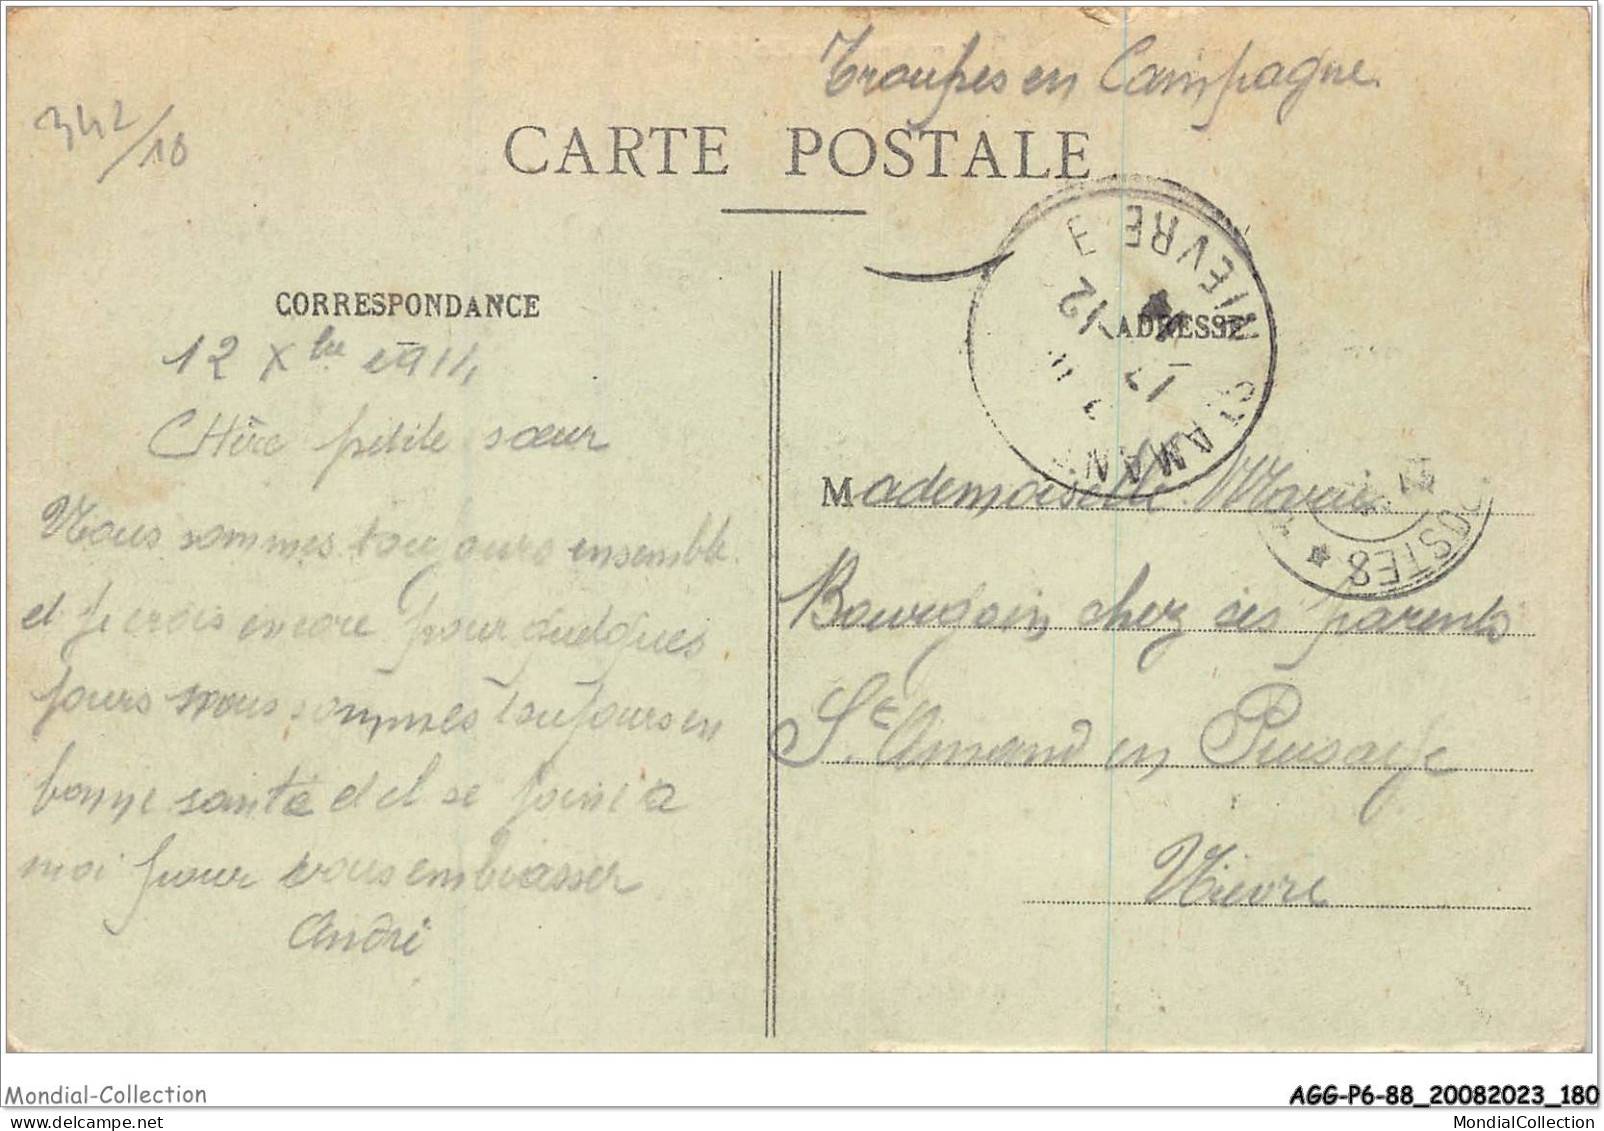 Troupes en Campagne
342/10
CARTE POSTALE
CORRESPONDANCE
12 Xbre 1914
CHère petite sœur
Nous sommes toujours ensemble
et je crois encore pour quelques
jours nous sommes toujours en
bonne santé et il se joint a
moi pour vous embrasser
André
ADRESSE
Mademoiselle Marie
Bourgoin chez ses parents
St Amand en Puisaye
Nièvre
ST AMAND NIÈVRE
17 -12
14
POSTES
Mondial-Collection
AGG-P6-88_20082023_180
MondialCollection